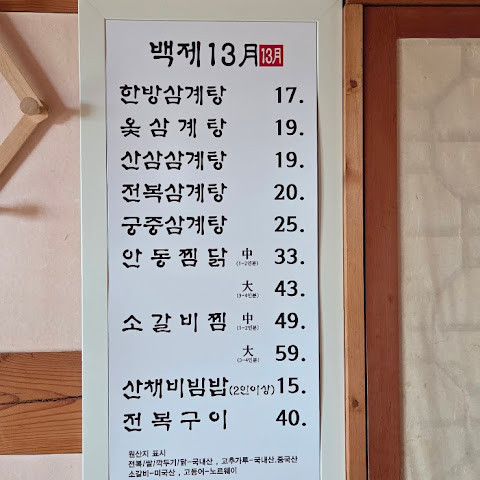 백제13月 13月
한방삼계탕 17.
옻삼계탕 19.
산삼삼계탕 19.
전복삼계탕 20.
궁중삼계탕 25.
안동찜닭 中 (1-2인분) 33.
大 (3-4인분) 43.
소갈비찜 中 (1-2인분) 49.
大 (3-4인분) 59.
산채비빔밥(2인이상) 15.
전복구이 40.
원산지 표시
전복/쌀/깍두기/닭-국내산 , 고추가루-국내산,중국산
소갈비-미국산 , 고등어-노르웨이